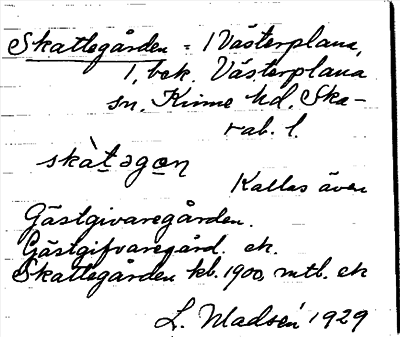 Skattegården = 1 Västerplana,
1, bek. Västerplana
sn. Kinne hd. Ska-
rab. l.
skàtəgɷn
Kallas även
Gästgivaregården.
Gästgifvaregård. ek.
Skattegården kb. 1900, mtl. ek
L. Madsén 1929